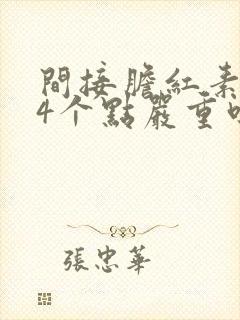 間接膽紅素
4个點嚴重
張忠華